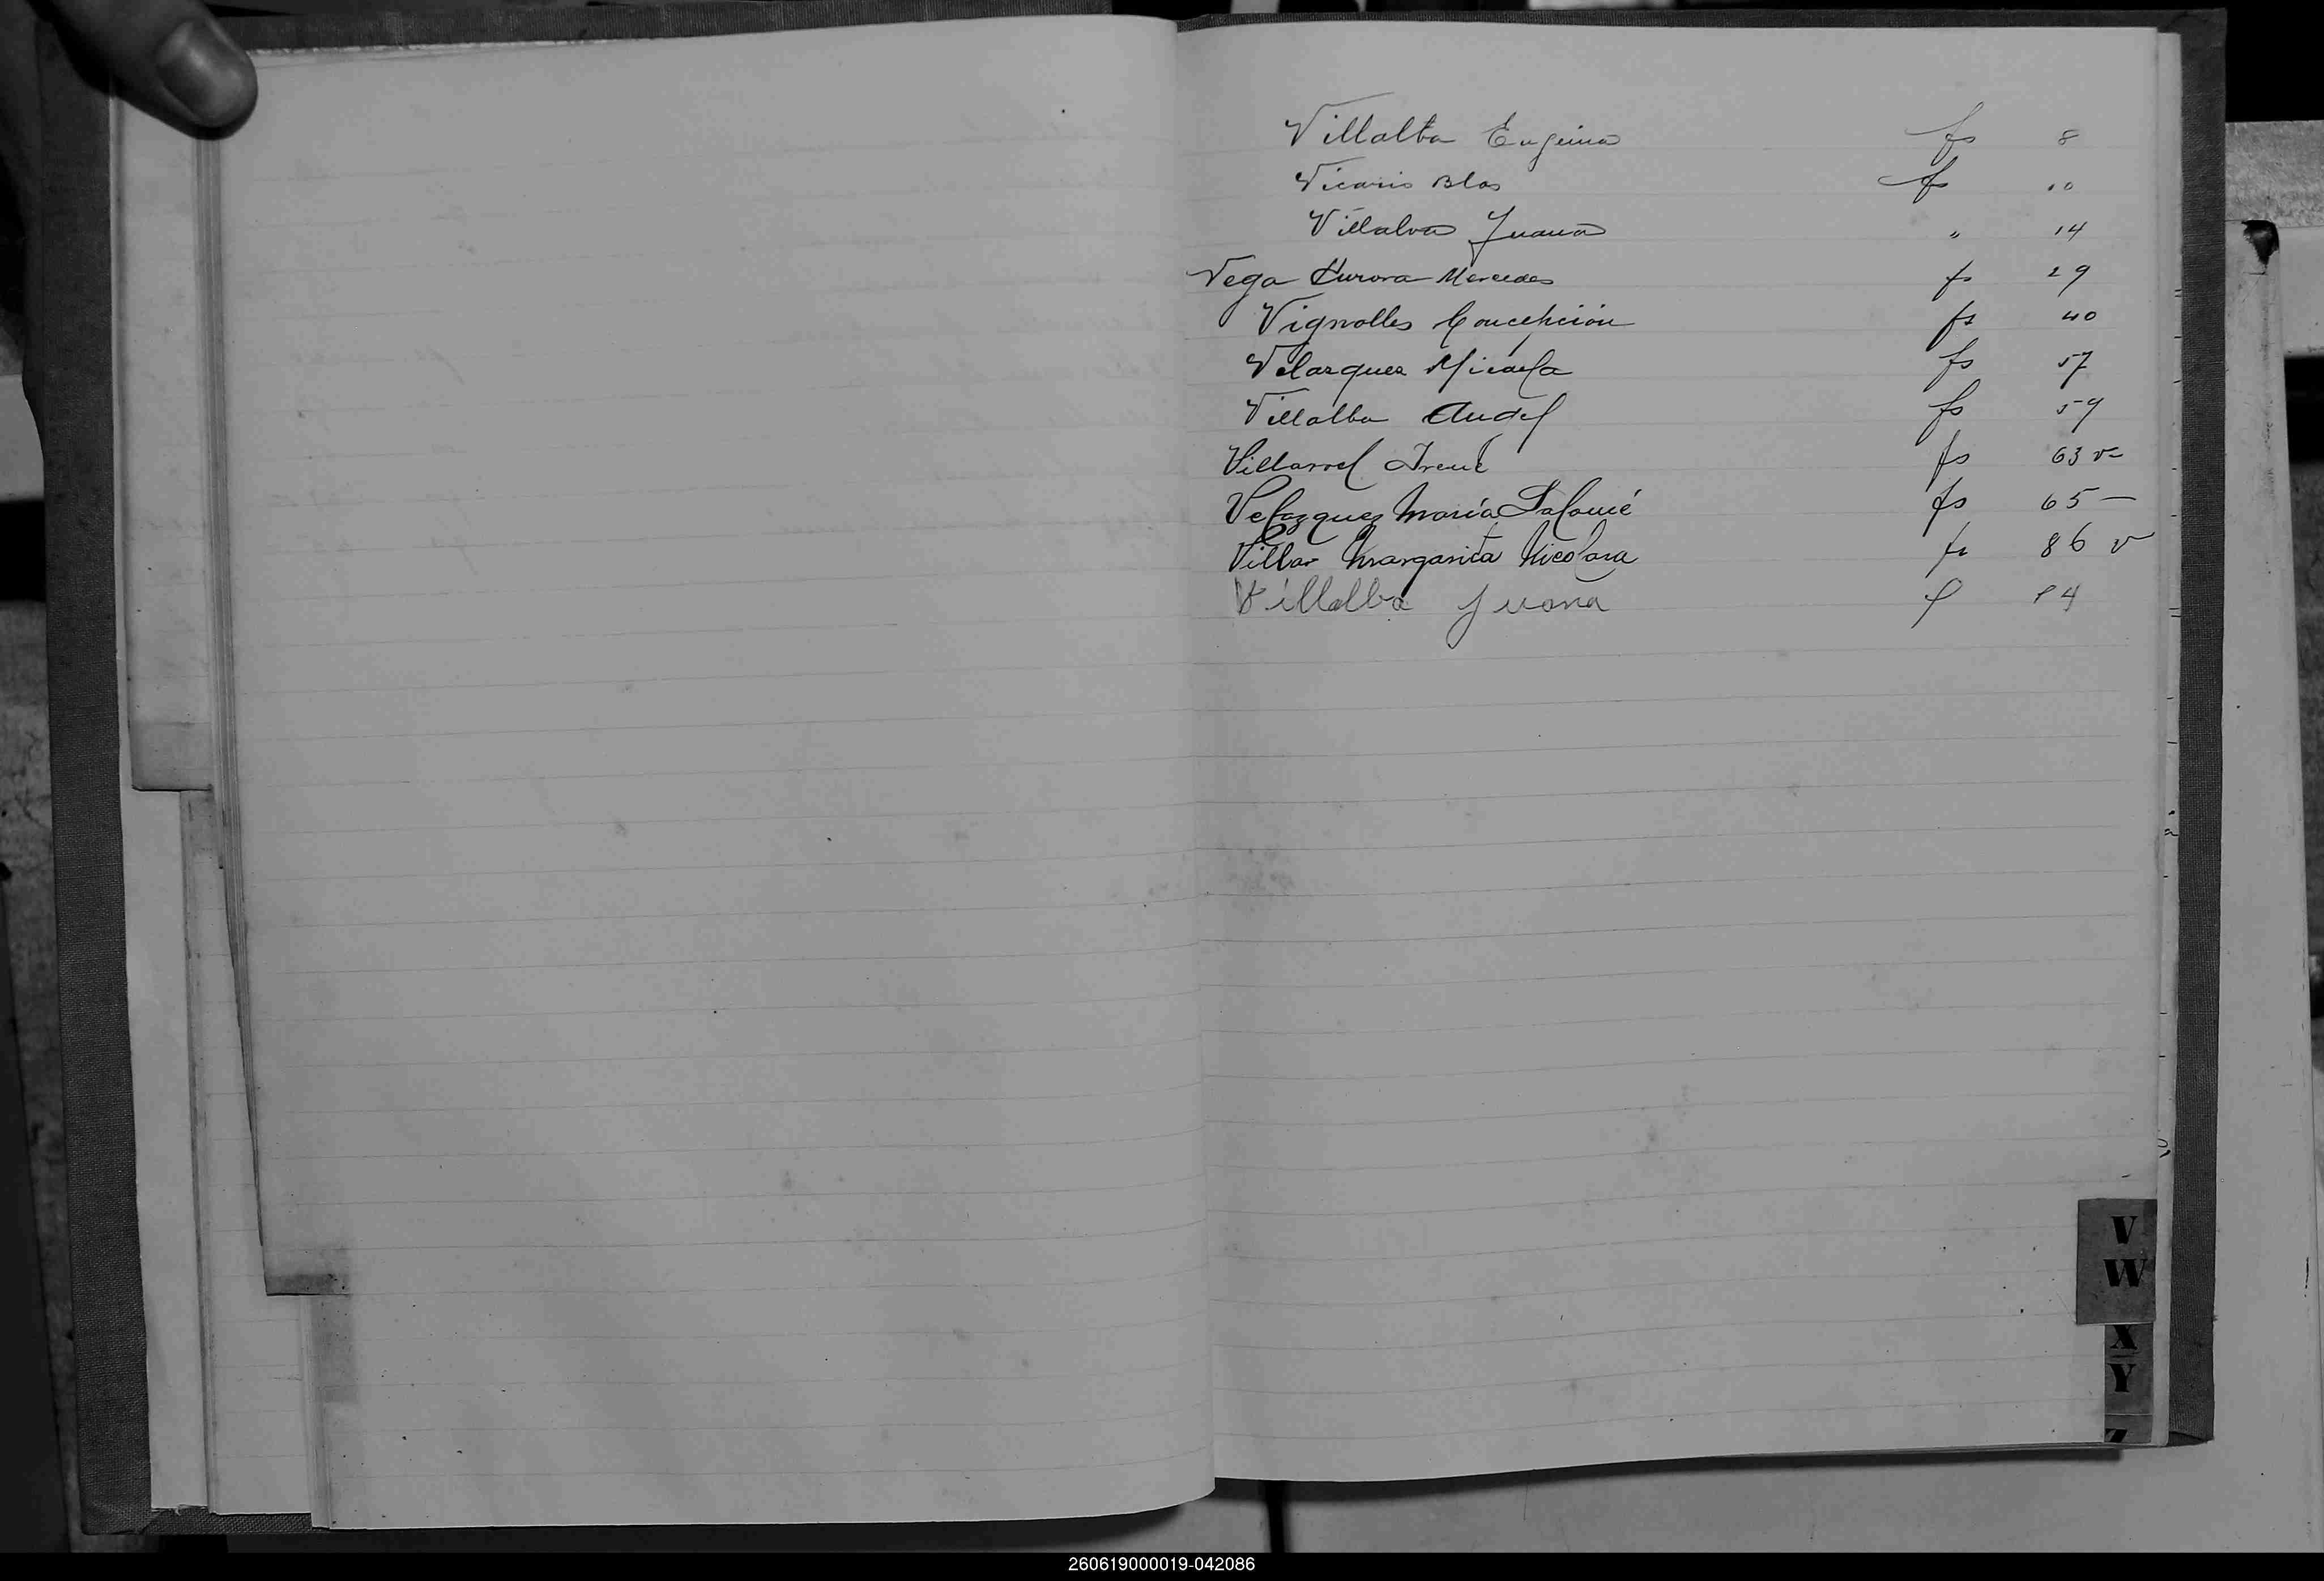 Villalba Eugenia fs 8
Vicario Blas fs 10
Villalva Juana " 14
Vega Aurora Mercedes fs 29
Vignolles Concepción fs 40
Velazquez Micaela fs 57
Villalba fs 59
Villarroel Irene fs 63 v
Velazquez María Salomé fs 65 —
Villar Margarita Nicolasa fs 86 v
Villalba Juana f 94
V
W
X
Y
Z
260619000019-042086